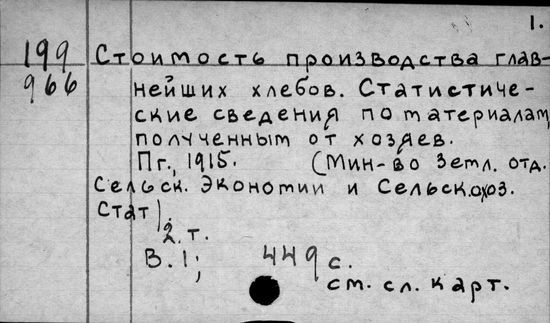 1.
199 Стоимость производства глав-
966 нейших хлебов. Статистиче-
ские сведения по материалам,
полученным от хозяев.
Пг., 1915. (Мин-во Земл. отд.
Сельск. Экономии и Сельск.хоз.
Стат).
2. т.
В. 1; 449 с.
см. сл. карт.